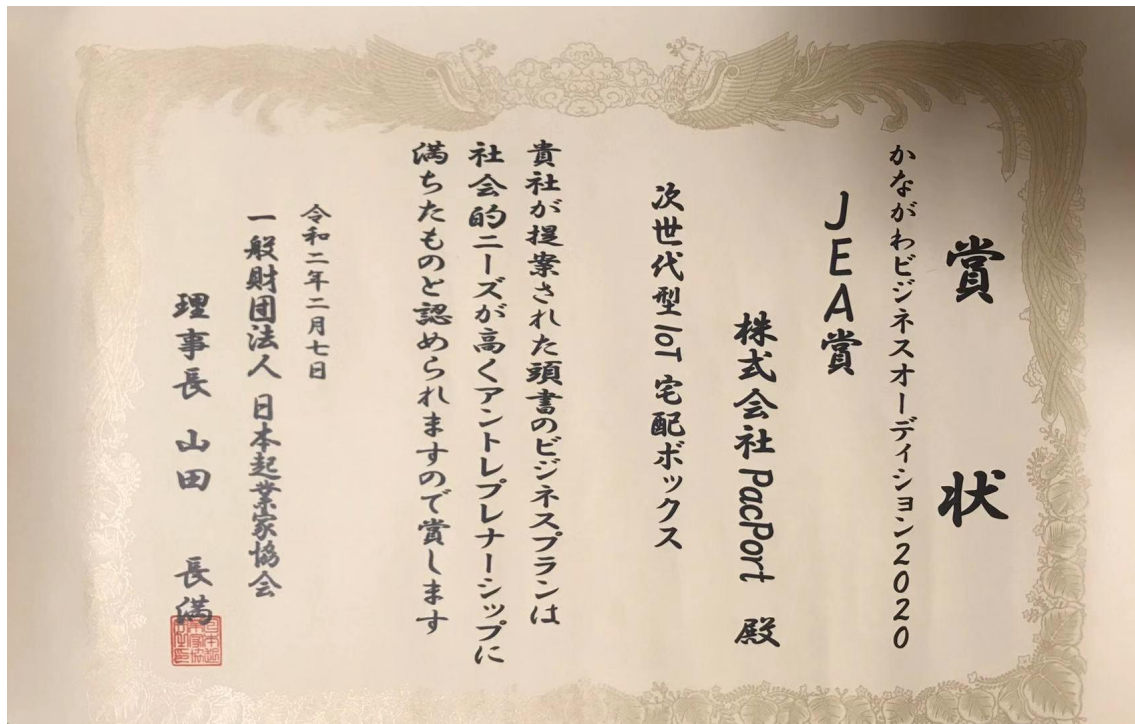 賞状
かながわビジネスオーディション2020
JEA賞
株式会社PacPort 殿
次世代型IoT宅配ボックス
貴社が提案された頭書のビジネスプランは
社会的ニーズが高くアントレプレナーシップに
満ちたものと認められますので賞します
令和二年二月七日
一般財団法人 日本起業家協会
理事長 山田 長満